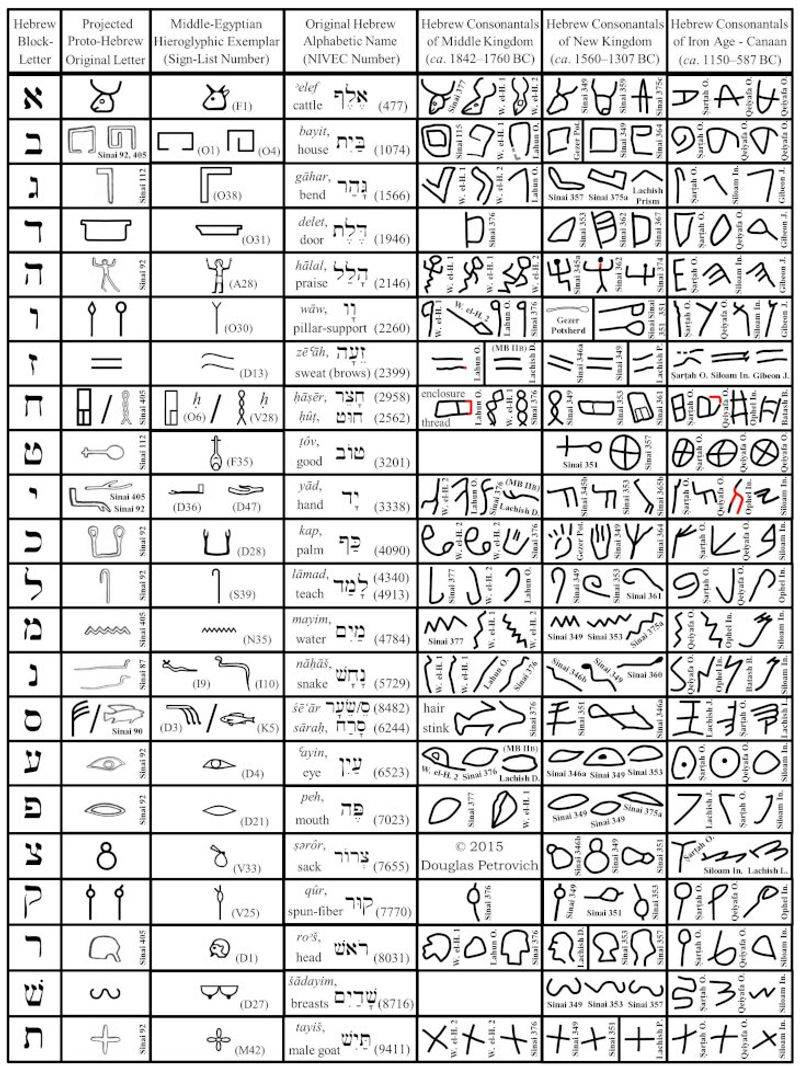 Hebrew Block-Letter
Projected Proto-Hebrew Original Letter
Middle-Egyptian Hieroglyphic Exemplar (Sign-List Number)
Original Hebrew Alphabetic Name (NIVEC Number)
Hebrew Consonantals of Middle Kingdom (ca. 1842–1760 BC)
Hebrew Consonantals of New Kingdom (ca. 1560–1307 BC)
Hebrew Consonantals of Iron Age - Canaan (ca. 1150–587 BC)
א (F1) ʾelef cattle אֶלֶף (477) Sinai 377 W. el-H. 1 W. el-H. 2 Sinai 349 Sinai 359 Sinai 375c Sarṭah O. Qeiyafa O. Qeiyafa O.
ב Sinai 92, 405 (O1) (O4) bayit, house בַּיִת (1074) Sinai 115 W. el-H. 1 Lahun O. Gezer Pot. Sinai 349 Sinai 364 Sarṭah O. Qeiyafa O. Qeiyafa O.
ג Sinai 112 (O38) gāhar, bend גָּהַר (1566) W. el-H. 1 W. el-H. 1 Lahun O. Sinai 357 Sinai 375a Lachish Prism Sarṭah O. Siloam In. Gibeon J.
ד (O31) delet, door דֶּלֶת (1946) Sinai 376 Sinai 353 Sinai 362 Sinai 367 Sarṭah O. Qeiyafa O. Gibeon J.
ה Sinai 92 (A28) hālal, praise הָלַל (2146) W. el-H. 1 W. el-H. 1 W. el-H. 2 Sinai 345a Sinai 362 Sinai 374 Sarṭah O. Siloam In. Gibeon J.
ו (O30) wāw, pillar-support וָו (2260) W. el-H. 1 W. el-H. 2 Lahun O. Sinai 376 Gezer Potsherd Sinai 351 Sinai 351 Sarṭah O. Qeiyafa O. Siloam In. Gibeon J.
ז (D13) zēʿāh, sweat (brows) זֵעָה (2399) Lahun O. (MB IIB) Lachish D. Sinai 346a Sinai 349 Lachish P. Sarṭah O. Siloam In. Gibeon J.
ח Sinai 405 ḥ (O6) ḥ (V28) ḥāṣēr, חָצֵר (2958) ḥûṭ, חוּט (2562) enclosure thread Lahun O. W. el-H. 1 Sinai 376 Sinai 349 Sinai 353 Sinai 361 Sarṭah O. Qeiyafa O. Ophel In. Batash B.
ט Sinai 112 (F35) ṭôv, good טוֹב (3201) Sinai 351 Sinai 357 Sarṭah O. Qeiyafa O. Qeiyafa O.
י Sinai 405 Sinai 92 (D36) (D47) yād, hand יָד (3338) W. el-H. 2 Lahun O. Sinai 376 (MB IIB) Lachish D. Sinai 345b Sinai 353 Sinai 365b Sarṭah O. Qeiyafa O. Ophel In. Siloam In.
כ Sinai 92 (D28) kap, palm כַּף (4090) W. el-H. 2 W. el-H. 2 Sinai 376 Gezer Pot. Sinai 349 Sinai 364 Sarṭah O. Qeiyafa O. Siloam In.
ל Sinai 92 (S39) lāmad, teach לָמַד (4340) (4913) Sinai 377 W. el-H. 2 Lahun O. Sinai 349 Sinai 353 Sinai 361 Sarṭah O. Qeiyafa O. Ophel In.
מ Sinai 405 (N35) mayim, water מַיִם (4784) Sinai 377 W. el-H. 1 W. el-H. 2 Sinai 349 Sinai 353 Sinai 375a Qeiyafa O. Ophel In. Siloam In.
נ Sinai 87 (I9) (I10) nāḥāš, snake נָחָשׁ (5729) W. el-H. 1 W. el-H. 1 Lahun O. Sinai 376 Sinai 346b Sinai 349 Sinai 360 Qeiyafa O. Ophel In. Batash B. Siloam In.
ס Sinai 90 (D3) (K5) śēʿār שֵׂעָר/ס (8482) sāraḥ, סָרַח (6244) hair stink Sinai 376 Sinai 351 Sinai 346a Lachish J. Sarṭah O. Lachish J.
ע Sinai 92 (D4) ʿayin, eye עַיִן (6523) W. el-H. 2 Sinai 376 (MB IIB) Lachish D. Sinai 346a Sinai 349 Sinai 353 Sarṭah O. Qeiyafa O. Siloam In.
פ Sinai 92 (D21) peh, mouth פֶּה (7023) Sinai 377 W. el-H. 1 Sinai 349 Sinai 349 Sinai 375a Lachish J. Lachish O. Siloam In.
צ (V33) ṣərôr, sack צְרוֹר (7655) © 2015 Douglas Petrovich Sinai 346b Sinai 349 Sinai 351 Sarṭah O. Siloam In. Lachish L.
ק (V25) qûr, spun-fiber קוּר (7770) Sinai 376 Sinai 349 Sinai 351 Sinai 353 Sarṭah O. Qeiyafa O. Ophel In.
ר Sinai 405 (D1) roʾš, head רֹאשׁ (8031) W. el-H. 1 Lahun O. Sinai 376 Lachish D. Sinai 353 Sinai 357 Sarṭah O. Qeiyafa O. Siloam In.
שׁ (D27) šādayim, breasts שָׁדַיִם (8716) Sinai 349 Sinai 353 Sinai 357 Sarṭah O. Qeiyafa O. Siloam In.
ת Sinai 92 (M42) tayiš, male goat תַּיִשׁ (9411) W. el-H. 2 W. el-H. 2 Sinai 376 Sinai 349 Sinai 351 Lachish P. Sarṭah O. Qeiyafa O. Siloam In.